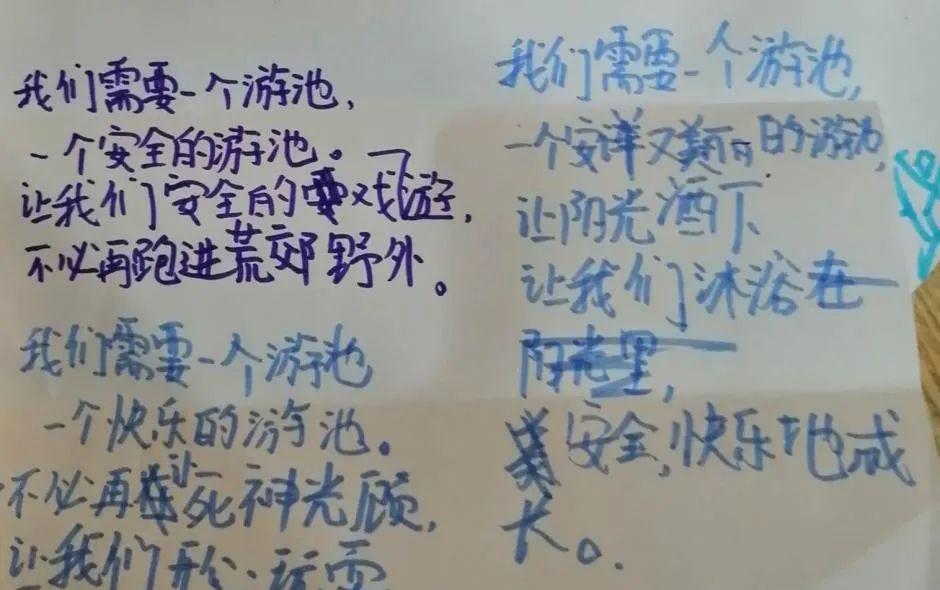 我们需要一个游泳池,
一个安全的游泳池。
让我们安全的戏游,
不必再跑进荒郊野外。
我们需要一个游泳池
一个快乐的游泳池。
不必再让死神光顾,
让我们开心玩耍
我们需要一个游池,
一个安详又美丽的游池,
让阳光洒下
让我们沐浴在
阳光里,
安全,快乐地成
长。